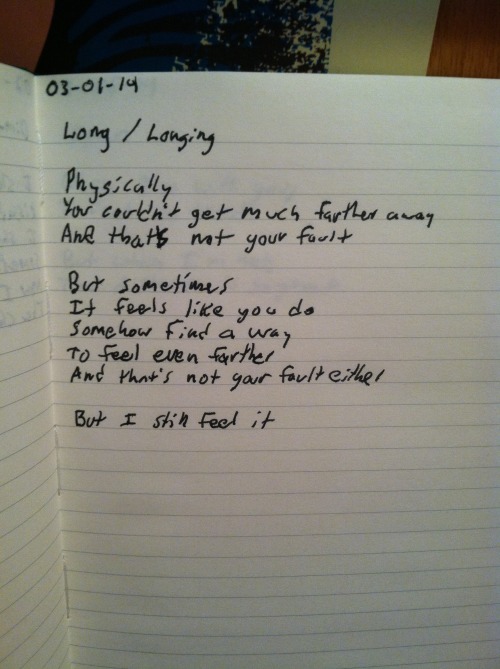 03-01-14
Long / Longing
Physically
You couldn't get much farther away
And that's not your fault
But sometimes
It feels like you do
Somehow find a way
To feel even farther
And that's not your fault either
But I still feel it